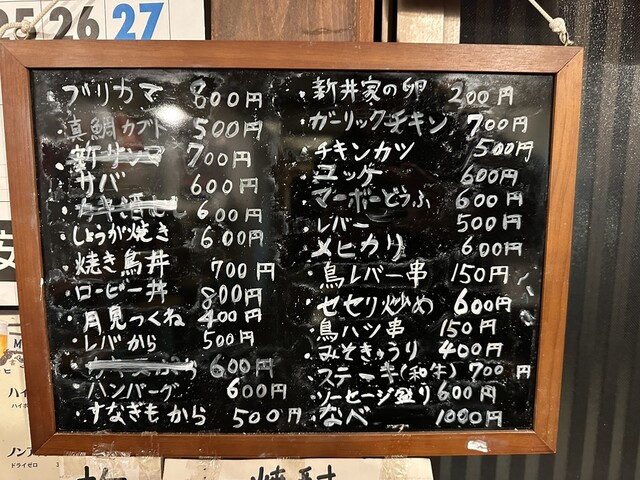 25 26 27
ブリカマ 800円
・真鯛カブト 500円
・新サンマ 700円
サバ 600円
600円
・しょうが焼き 600円
・焼き鳥丼 700円
・ロービー丼 800円
・月見つくね 400円
・レバから 500円
600円
・ハンバーグ 600円
・すなぎもから 500円
・新井家の卵 200円
・ガーリックチキン 700円
・チキンカツ 500円
・ユッケ 600円
・マーボーどうふ 600円
・レバー 500円
・メヒカリ 600円
・鳥レバー串 150円
・セセリ炒め 600円
・鳥ハツ串 150円
・みそきゅうり 400円
・ステーキ(和牛) 700円
・ソーセージ盛り 600円
・なべ 1000円
ドライゼロ